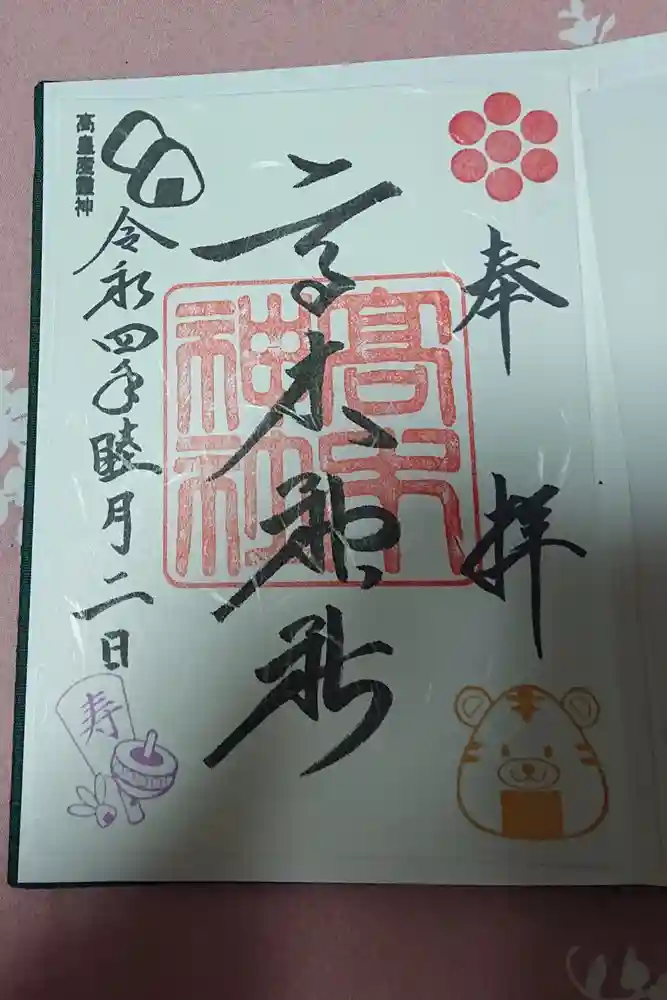 奉拝
高木神社
髙木
神社
高皇産靈神
令和四年睦月二日
寿